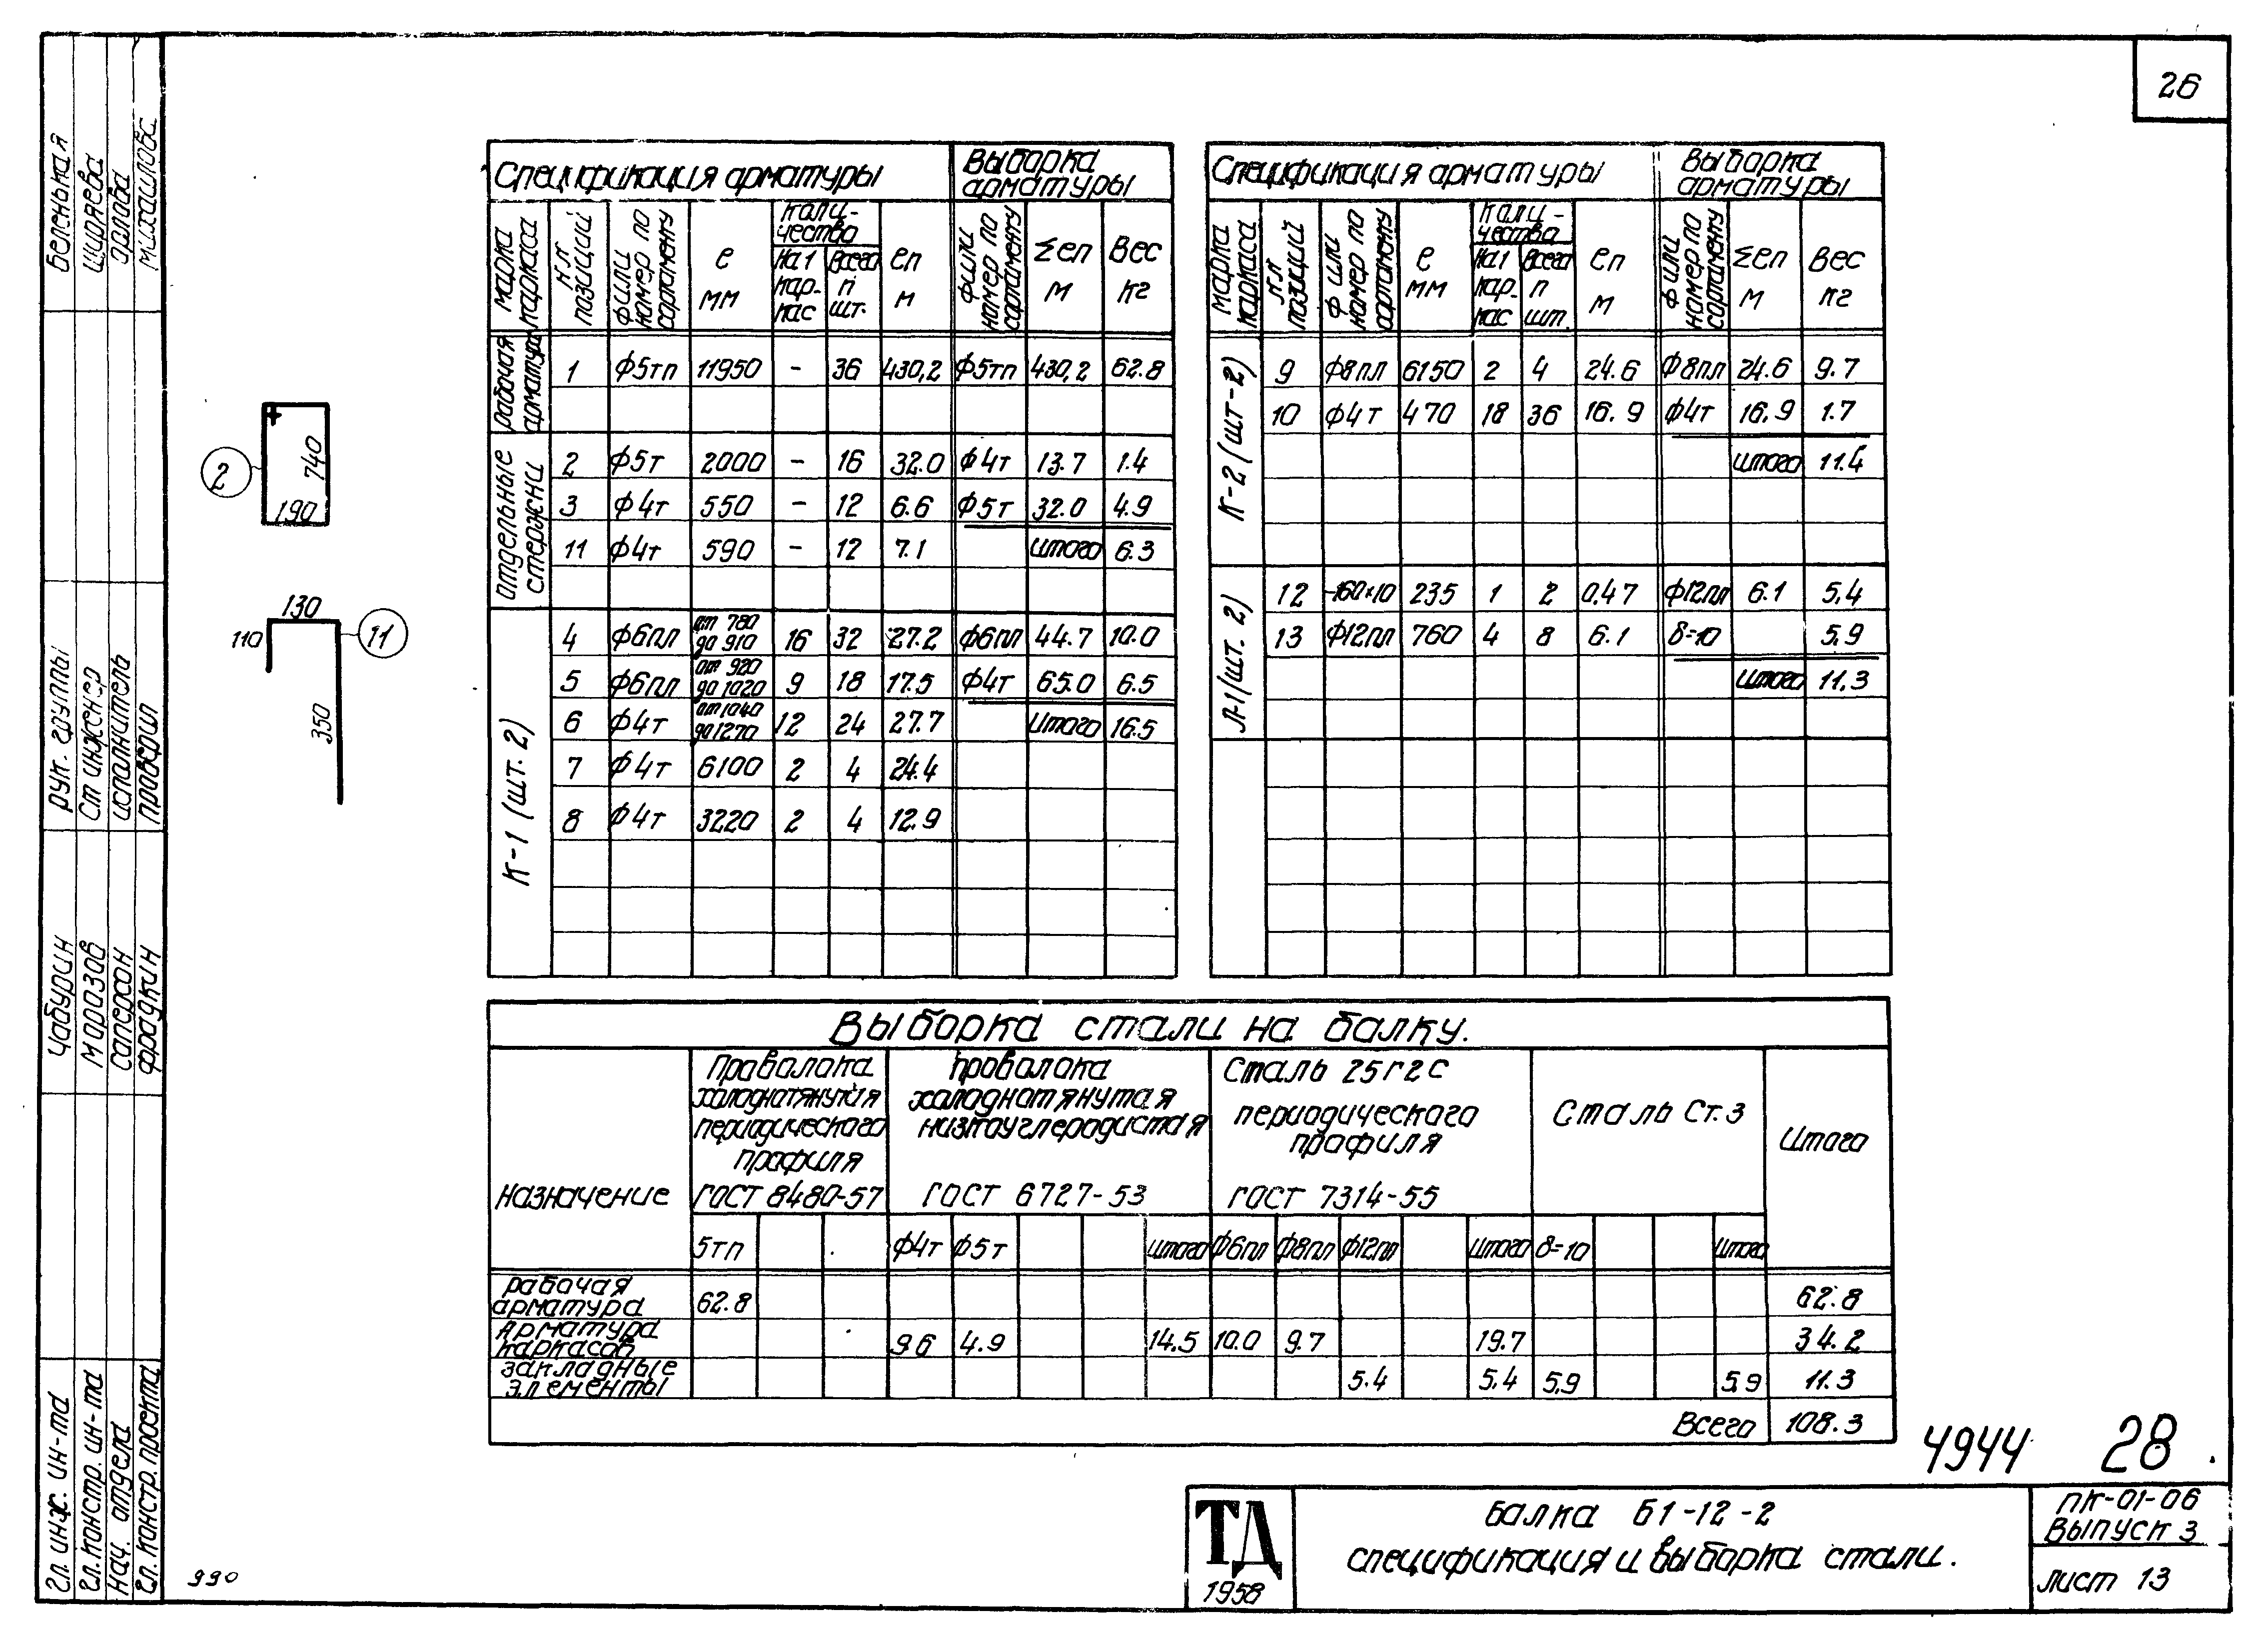 26
Спецификация арматуры Выборка арматуры
Марка каркаса №№ позиций ф или номер по сортаменту е мм Количества на 1 каркас Всего п шт. еп м ф или номер по сортаменту Σеп м Вес кг
Рабочая арматура
1 ф5тп 11950 - 36 430,2 ф5тп 430,2 62.8
Отдельные стержни
2 ф5т 2000 - 16 32.0 ф4т 13.7 1.4
3 ф4т 550 - 12 6.6 ф5т 32.0 4.9
11 ф4т 590 - 12 7.1 Итого 6.3
К-1 (шт. 2)
4 ф6пл от 780 до 910 16 32 27.2 ф6пл 44.7 10.0
5 ф6пл от 920 до 1020 9 18 17.5 ф4т 65.0 6.5
6 ф4т от 1040 до 1270 12 24 27.7 Итого 16.5
7 ф4т 6100 2 4 24.4
8 ф4т 3220 2 4 12.9
Спецификация арматуры Выборка арматуры
Марка каркаса №№ позиций ф или номер по сортаменту е мм Количества на 1 каркас Всего п шт. еп м ф или номер по сортаменту Σеп м Вес кг
К-2 (шт-2)
9 ф8пл 6150 2 4 24.6 ф8пл 24.6 9.7
10 ф4т 470 18 36 16.9 ф4т 16.9 1.7
Итого 11.4
Л-1 (шт. 2)
12 -160×10 235 1 2 0.47 ф12пл 6.1 5,4
13 ф12пл 760 4 8 6.1 δ=10 5.9
Итого 11.3
2
740
190
130
110
11
350
Выборка стали на балку.
Назначение
Проволока холоднотянутая периодического профиля ГОСТ 8480-57
Проволока холоднотянутая низкоуглеродистая ГОСТ 6727-53
Сталь 25Г2С периодического профиля ГОСТ 7314-55
Сталь Ст.3
Итого
5тп ф4т ф5т Итого ф6пл ф8пл ф12пл Итого δ=10 Итого
Рабочая арматура 62.8 62.8
Арматура каркасов 9.6 4.9 14.5 10.0 9.7 19.7 34.2
Закладные элементы 5.4 5,4 5,9 5,9 11.3
Всего 108.3
4944 28
ТД
1958
Балка Б1-12-2
спецификация и выборка стали.
ПК-01-06
Выпуск 3
лист 13
990
Беленькая
Ширяева
Орлова
Михайлова
Рук. группы
Ст инженер
исполнитель
проверил
Чабурин
Морозов
Саперсон
Фрадкин
Гл. инж. ин-та
Гл. констр. ин-та
Нач. отдела
Гл. констр. проекта